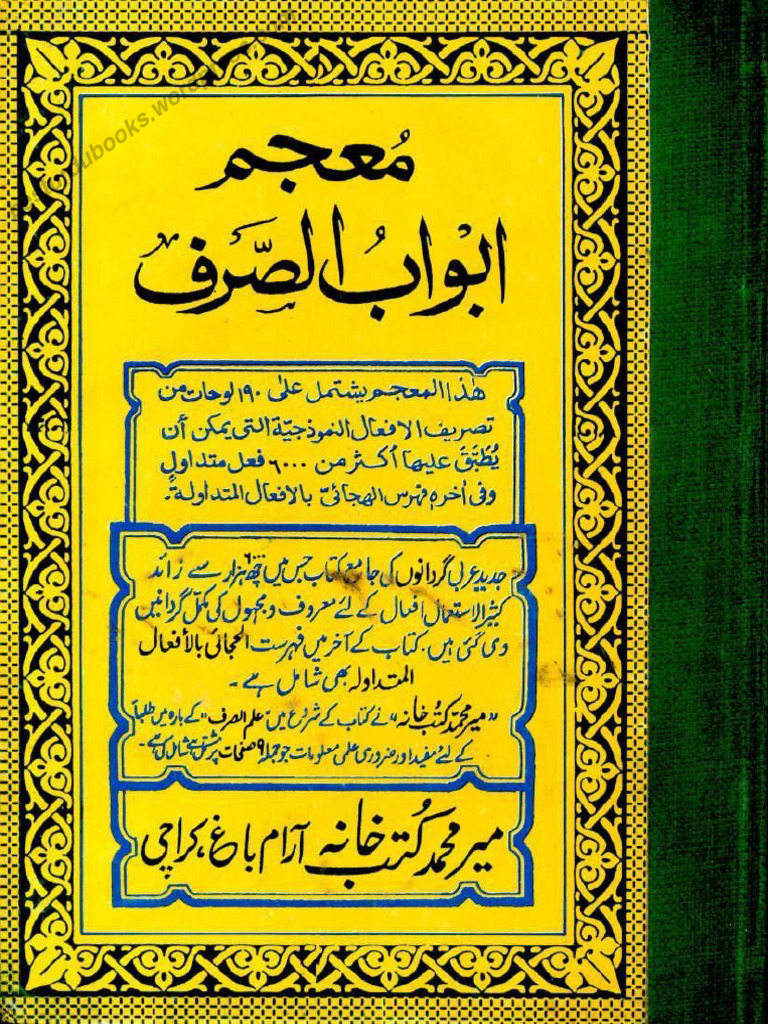 معجم
ابواب الصّرف
هٰذا المعجم يشتمل علىٰ ١٩٠ لوحات من
تصريف الافعال النموذجيّة التى يمكن أن
يُطبَّقَ عليها أكثر من ٦٠٠٠ فعل متداولٍ
وفى اٰخره فهرس الهجائىّ بالافعال المتداولة.
جدید عربی گردانوں کی جامع کتاب جس میں چھ ہزار سے زائد
کثیر الاستعمال افعال کے لئے معروف و مجہول کی مکمل گردانیں
دی گئی ہیں، کتاب کے آخر میں فہرست الحجائی بالأفعال
المتداولہ بھی شامل ہے۔
”میر محمد کتب خانہ“ نے کتاب کے شروع میں ”علم الصرف“ کے بارہ میں طلباً
کے لئے مفید اور ضروری علمی معلومات جو ۹ صفحات پر مشتمل ہے شامل کی ہے۔
میر محمد کتب خانہ آرام باغ، کراچی